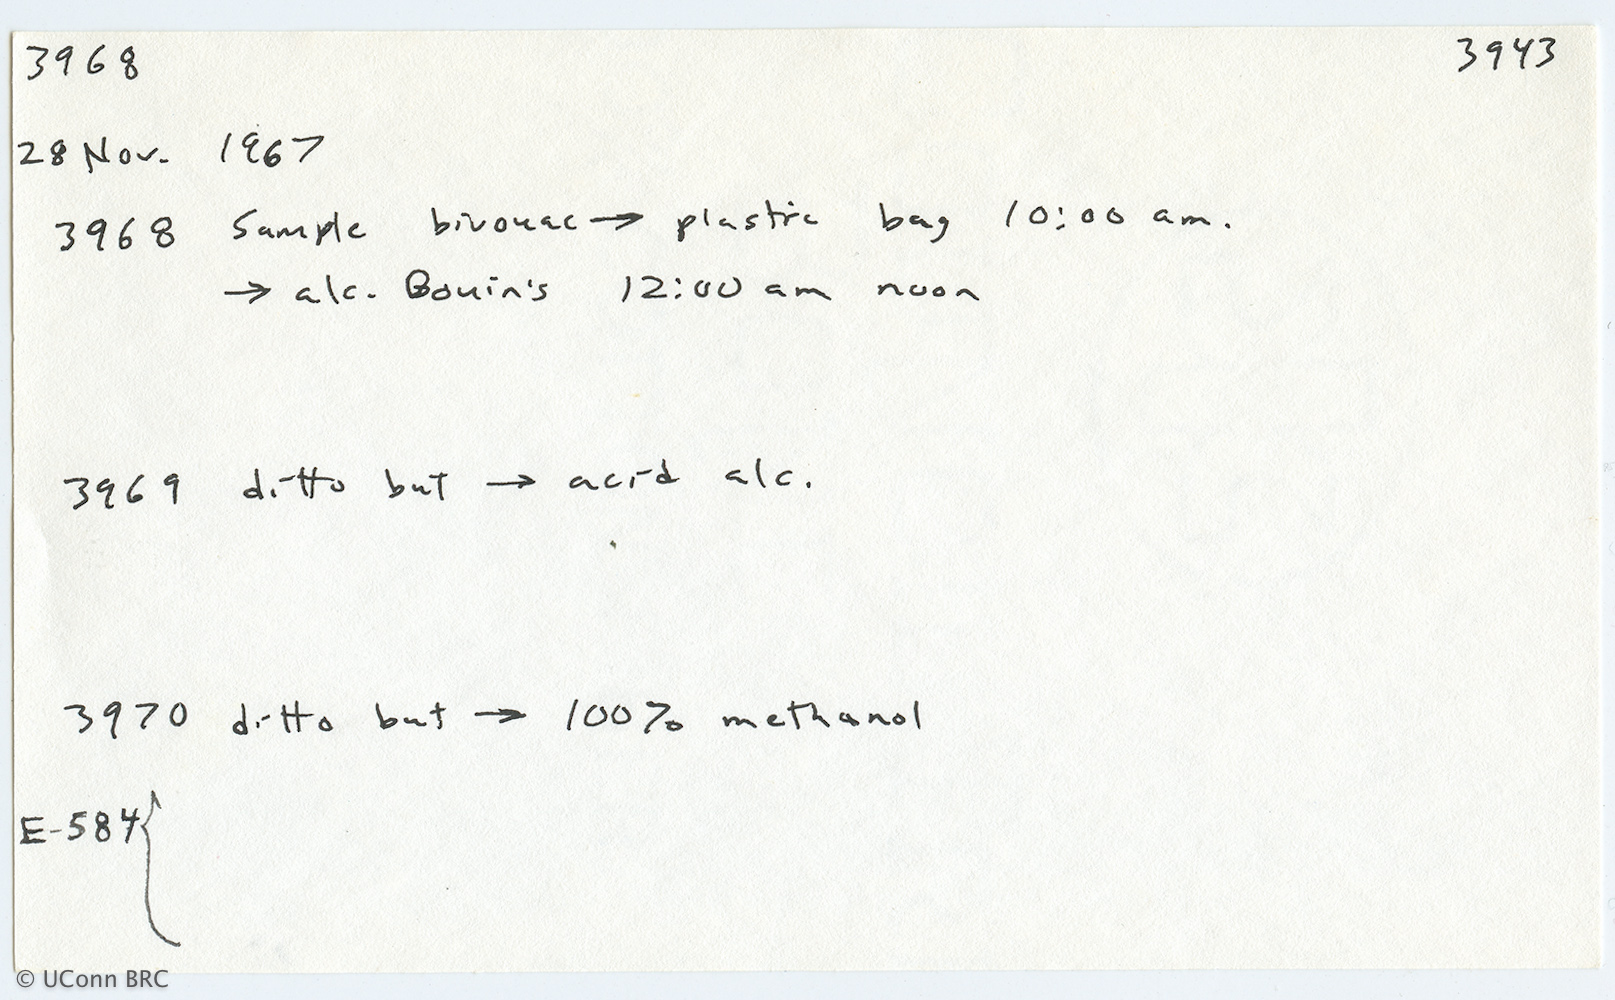 3968 3943
28 Nov. 1967
3968 Sample bivouac → plastic bag 10:00 am.
→ alc. Bouin's 12:00 am noon
3969 ditto but → acid alc.
3970 ditto but → 100% methanol
E-584 {
© UConn BRC